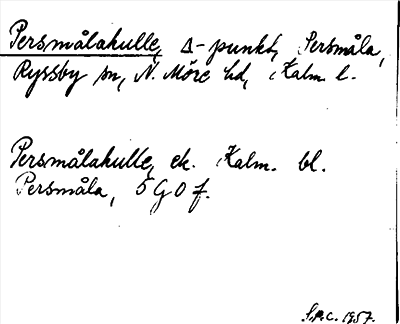 Persmålakulle, Δ-punkt, Persmåla,
Ryssby sn, N. Möre hd, Kalm. l.
Persmålakulle, ek. Kalm. bl.
Persmåla, 5 G 0 f.
1957.